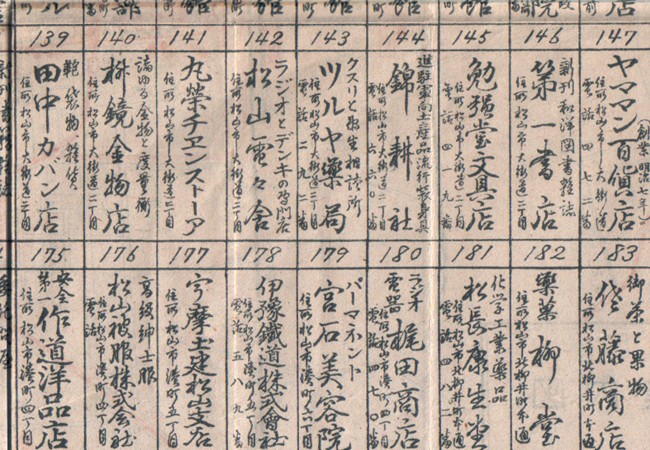 147
(創業明治七年)
ヤママン百貨店
住所 松山市大街道
電話 四七二番
146
新刊 和洋図書雑誌
第一書店
住所 松山市大街道二丁目
145
勉强堂文具店
住所 松山市大街道二丁目
電話 四一九番
144
進駐軍向土産品流行装身具
錦耕社
電話 六六〇番
143
クスリと衛生相談所
ツルヤ薬局
電話 二九二番
142
ラジオとデンキの専門店
松山電々舎
住所 松山市大街道二丁目
141
丸榮チヱンストーア
住所 松山市大街道二丁目
140
諸ゆる金物と度量衡
桝鏡金物店
住所 松山市大街道二丁目
139
鞄袋物雑貨
田中カバン店
住所 松山市大街道二丁目
183
御茶と果物
佐藤商店
住所 松山市北柳井町本通
182
漢薬 柳堂
住所 松山市北柳井町本通
181
化学工業薬品
松長康生堂
住所 松山市湊町
180
ラジオ
電器
梶田商店
住所 松山市湊町
電話 四七〇番
179
パーマネント
宮石美容院
住所 松山市湊町四丁目
178
伊豫鐵道株式會社
住所 松山市湊町五丁目
電話 五八九番
177
宇摩土建松山支店
住所 松山市湊町五丁目
176
高級紳士服
松山被服株式会社
住所 松山市湊町四丁目
電話
175
第一
作道洋品店
住所 松山市湊町四丁目